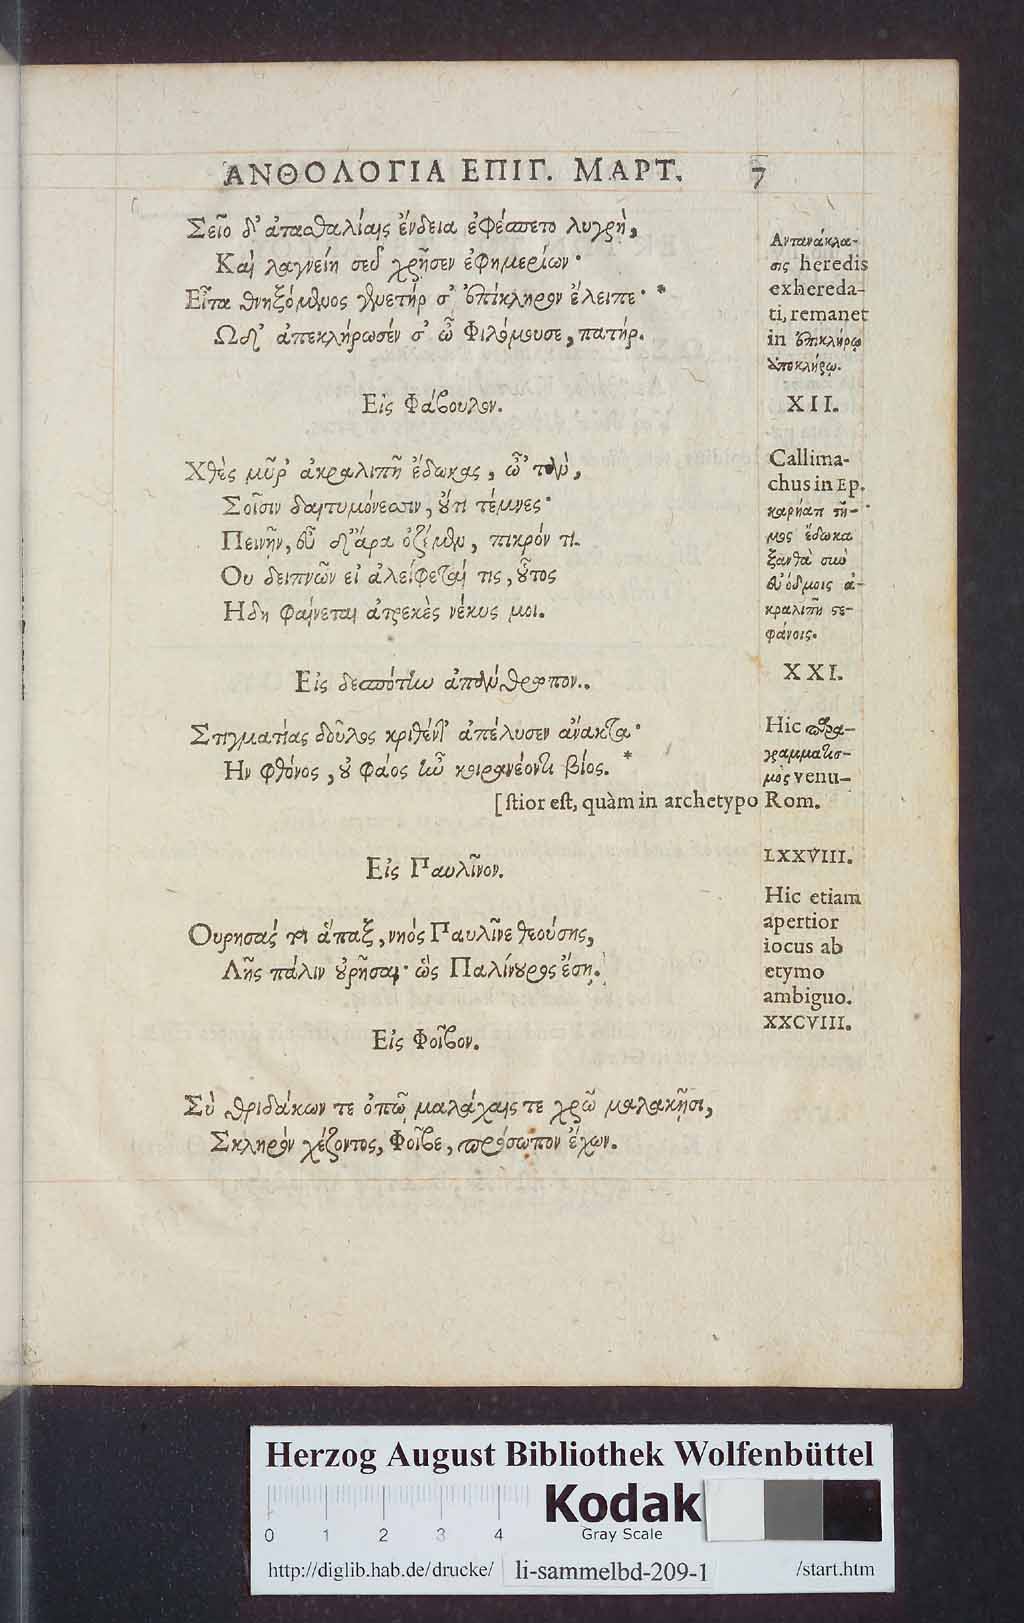 ΑΝΘΟΛΟΓΙΑ ΕΠΙΓ. ΜΑΡΤ. 7
Σεῖο δ' ἀταασθαλίαις ἔνδεια ἐφέσπετο λυγρὴ,
Καὶ λαγνείη σεῦ χρῆσεν ἐφημερίων·
Εἶτα θνηξόμενος γενετήρ σ' ἐπίκληρον ἔλειπε· *
Ωδ' ἀπεκλήρωσέν σ' ὦ Φιλόμουσε, πατήρ.
Ανταvάκλα-
σις heredis
exhereda-
ti, remanet
in ἐπικλήρῳ
ἀποκλήρῳ.
Εἰς Φάβουλον.
XII.
Χθὲς μῦρ' ἀκραλιπῆ ἔδωκας,
Σοῖσιν δαιτυμόνεσσιν, οὔτι τέμνες·
Πεινῆν, εὖ δ' ἄρα ὀζέμεν, πικρόν τι.
Ου δειπνῶν εἰ ἀλείφεταί τις, οὗτος
Ηδη φαίνεται ἀτρεκὲς νέκυς μοι.
Callima-
chus in Ep.
ἔδωκα
ξανθὰ σὺν
εὐόδμοις ἁ-
κραλιπῆ στε-
φάνοις.
Εἰς δεσπότην ἀπολύθρωπον..
XXI.
Στιγματίας δοῦλος κριθέντ' ἀπέλυσεν ἄνακτα·
Ην φθόνος, οὐ φάος ἦν κοιρανέοντι βίος. *
Hic παρα-
γραμματισ-
μὸς venu-
[stior est, quàm in archetypo Rom.
Εἰς Παυλῖνον.
LXXVIII.
Ουρησάς τι ἅπαξ, νηός Παυλῖνε θεούσης,
Λῆς πάλιν οὐρῆσαι· ὡς Παλίνουρος ἔσῃ.
Hic etiam
apertior
iocus ab
etymo
ambiguo.
XXCVIII.
Εἰς Φοῖβον.
Σὺ θριδάκων τε ὀπῷ μαλάχαις τε χρῶ μαλακῇσι,
Σκληρὸν χέζοντος, Φοῖβε, πρόσωπον ἔχων.
Herzog August Bibliothek Wolfenbüttel
0 1 2 3 4
Kodak
Gray Scale
http://diglib.hab.de/drucke/ li-sammelbd-209-1 /start.htm